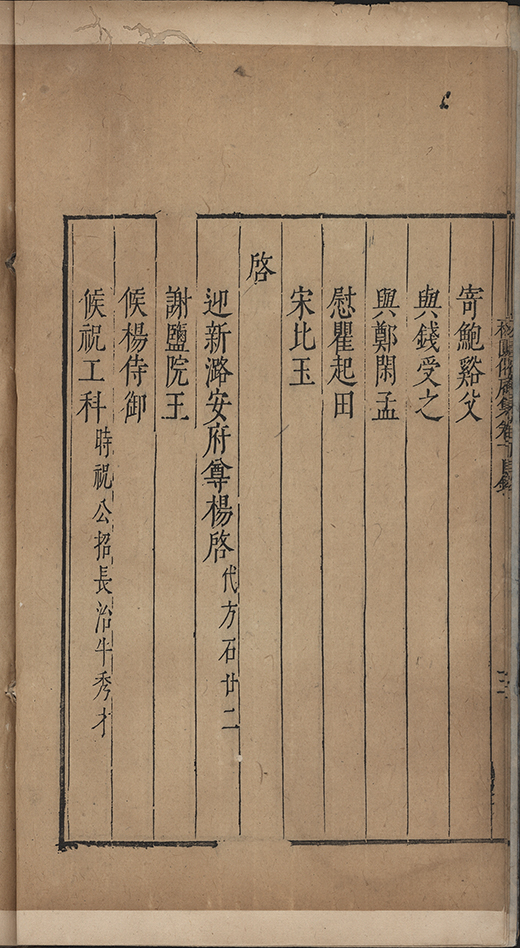 寄鮑谿父
與錢受之
與鄭閑孟
慰瞿起田
宋比玉
啓
迎新潞安府尊楊啓代方石廿二
謝鹽院王
候楊侍御
候祝工科時祝公招長治牛秀才